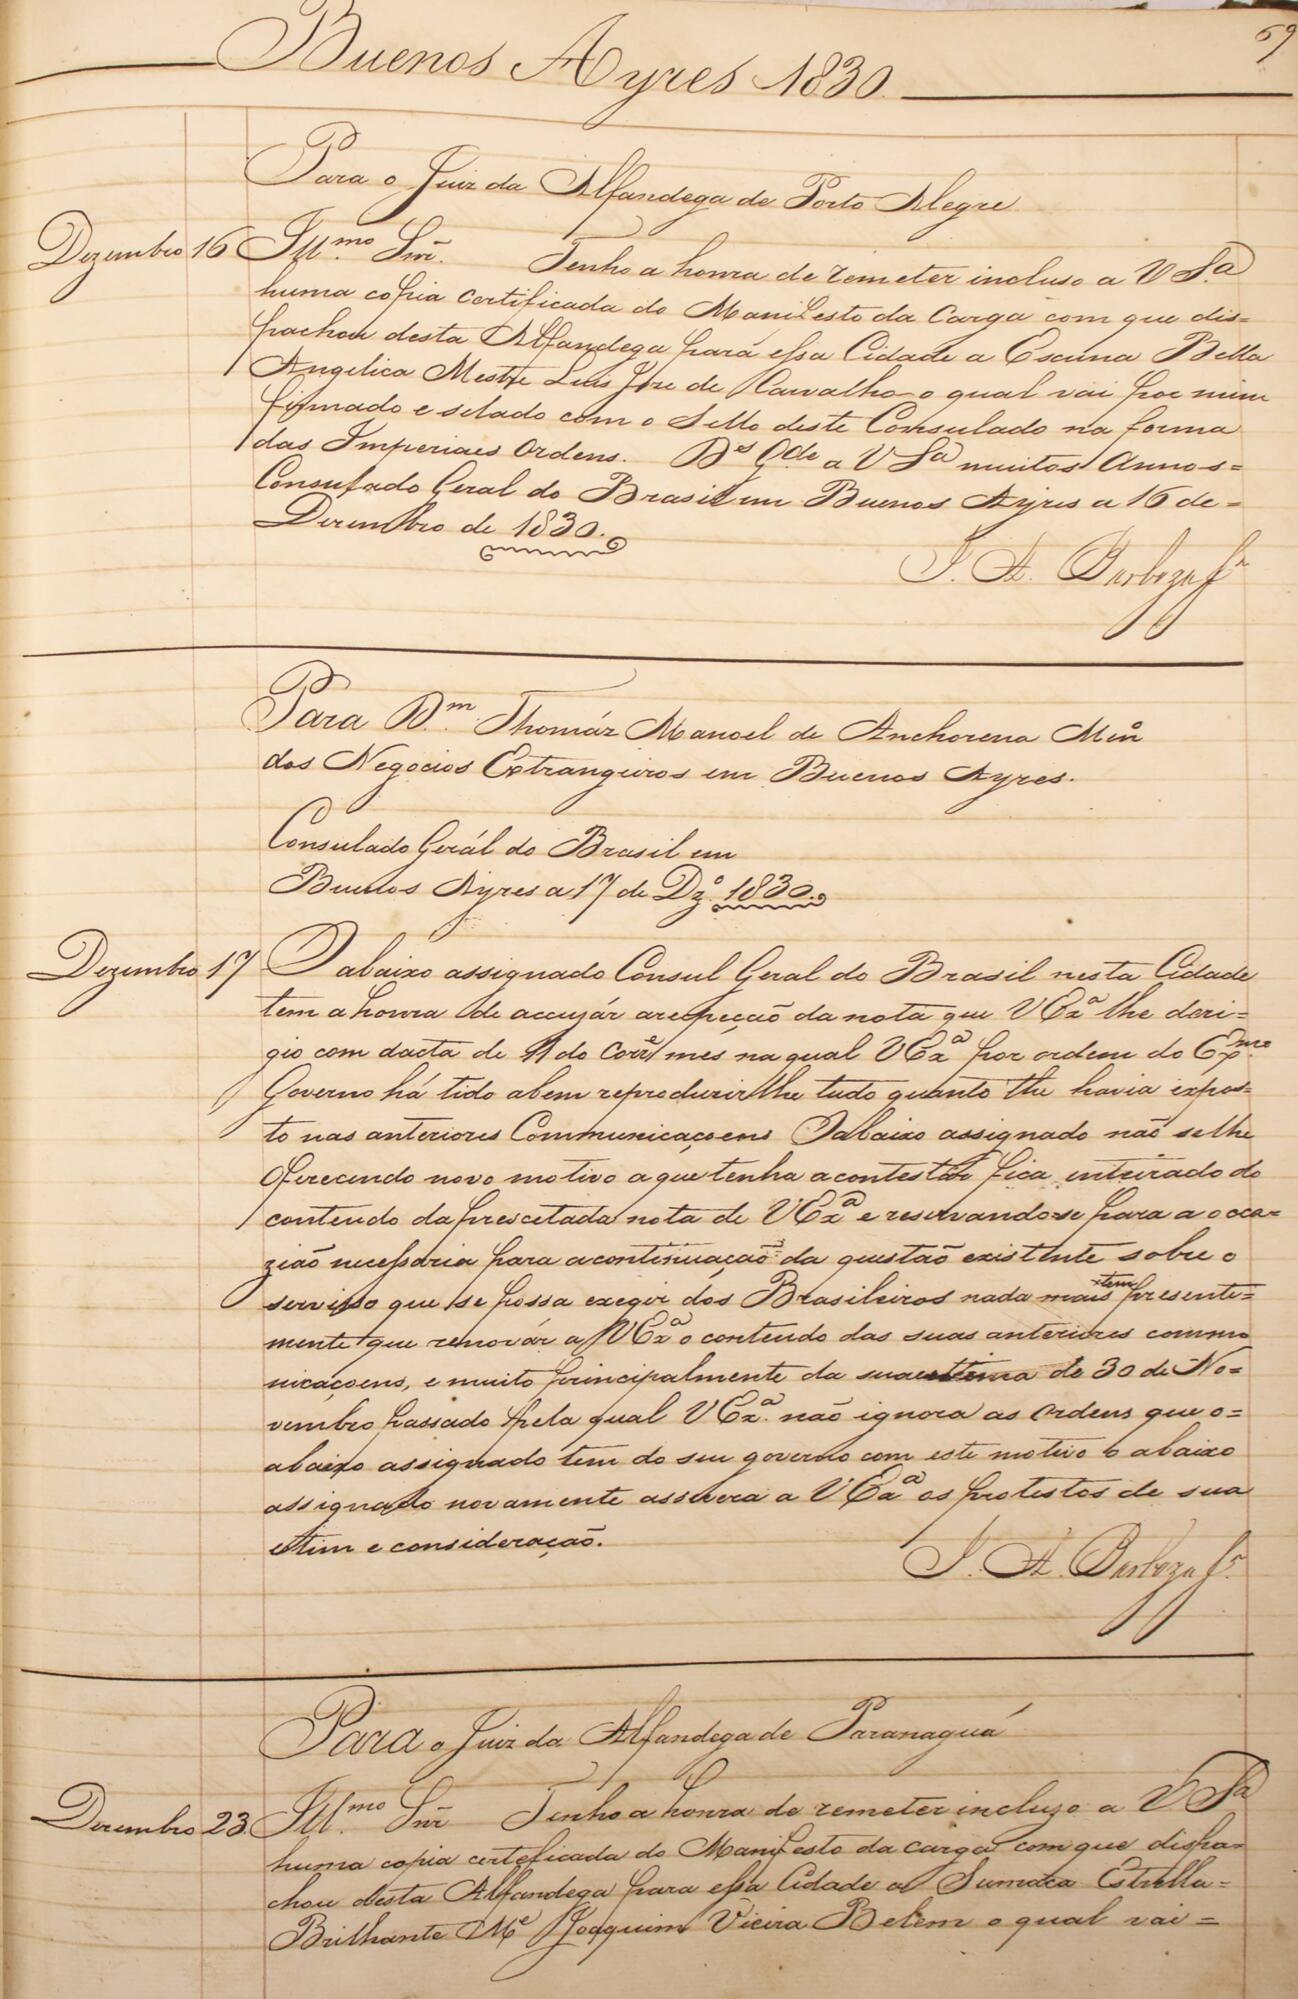 69
Buenos Ayres 1830
Para o Juiz da Alfandega de Porto Alegre
Dezembro 16 Illmo. Snr. Tenho a honra de remeter incluso a V Sa.
huma copia certificada do Manifesto da Carga com que dis=
pachou desta Alfandega para essa Cidade a Escuna Bella
Angelica Mestre Luis Jose de Carvalho o qual vai por mim
firmado e selado com o Sello deste Consulado na forma
das Imperiaes Ordens. Ds Gde a V Sa muitos Annos=
Consulado Geral do Brasil em Buenos Ayres a 16 de=
Dezembro de 1830.
J. A. Barboza
Para Dm. Thomáz Manoel de Anchorena Min
dos Negocios Extrangeiros em Buenos Ayres.
Consulado Gerál do Brasil em
Buenos Ayres a 17 de Dzo. 1830.
Dezembro 17 O abaixo assignado Consul Geral do Brasil nesta Cidade
tem a honra de accuzár a recepcão da nota que V Exa lhe deri=
gio com dacta de 11 do Corre mes na qual V Exa por ordem do Exmo.
Governo há tido abem reproduzir lhe tudo quanto lhe havia expos=
to nas anteriores Communicaçoens O abaixo assignado não se lhe
oferecendo novo motivo a que tenha a contestár fica inteirado do
contendo da prescetada nota de V Exa e reservando-se para a o oca=
zião necessaria para a continuação da questão existente sobre o
servisso que se possa exegir dos Brasileiros nada mais tem presente=
mente que renovár a V Exa o contendo das suas anteriores commu
nicaçoens, e muito principalmente da sua ultima de 30 de No=
vembro passado pela qual V Exa. não ignora as Ordens que o=
abaixo assignado tem do seu governo com este motivo o abaixo
assignado novamente assevera a V Exa os protestos de sua
estim e consideração.
J. A. Barboza
Para o Juiz da Alfandega de Paranaguá
Dezembro 23 Illmo. Snr Tenho a honra de remeter incluzo a V Sa
huma copia certeficada do Manifesto da carga com que dispa=
chou desta Alfandega para essa Cidade a Sumaca Estrella=
Brilhante Me Joaquim Vieira Belem o qual vai=